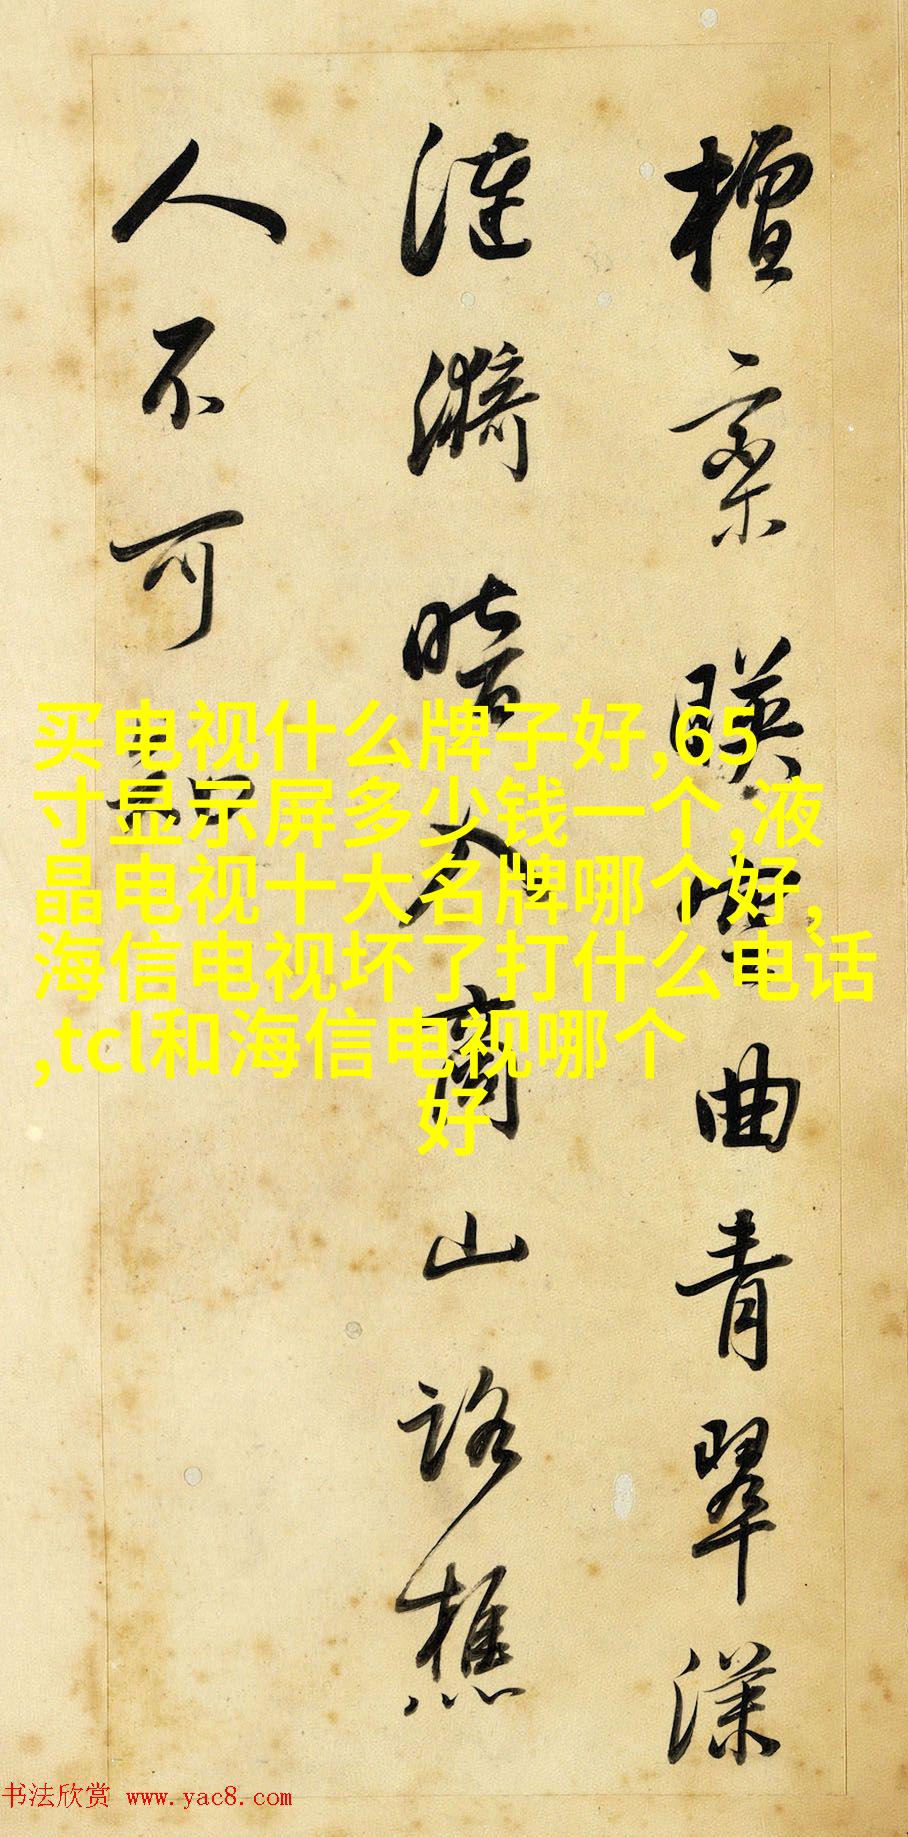 檀栾暎空曲青翠漾
漣漪暗入商山路樵
人不可知
买电视什么牌子好,65
寸显示屏多少钱一个,液
晶电视十大名牌哪个好,
海信电视坏了打什么电话
,tcl和海信电视哪个
好
书法欣赏 www.yac8.com